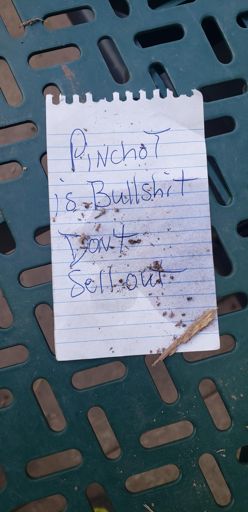 PINCHOT
is Bullshit
Dont
Sell out